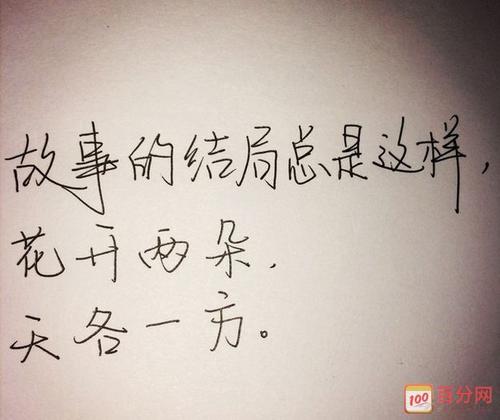 故事的结局总是这样,
花开两朵,
天各一方。
100
百分网